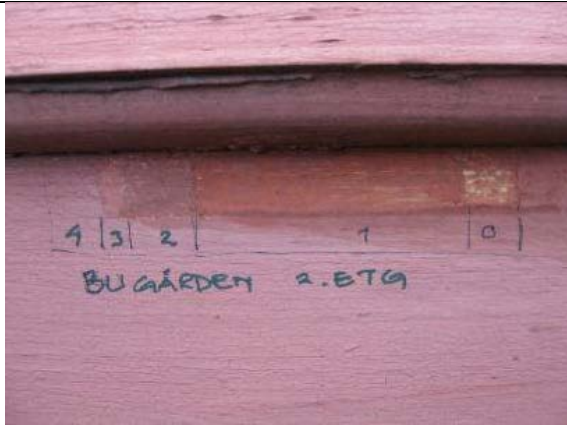 4 3 2 1 0
BUGÅRDEN 2.ETG